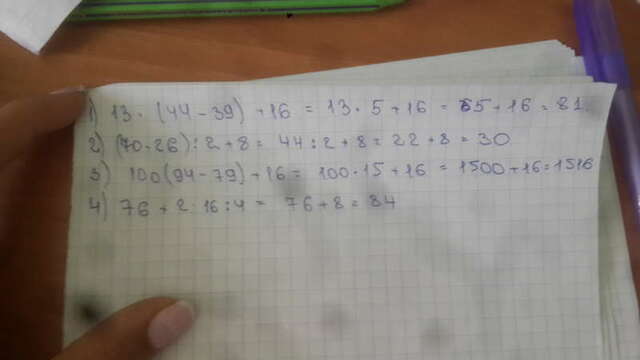 1) 13 · (44 - 39) + 16 = 13 · 5 + 16 = 65 + 16 = 81
2) (70 - 26) : 2 + 8 = 44 : 2 + 8 = 22 + 8 = 30
3) 100(94 - 79) + 16 = 100 · 15 + 16 = 1500 + 16 = 1516
4) 76 + 2 · 16 : 4 = 76 + 8 = 84